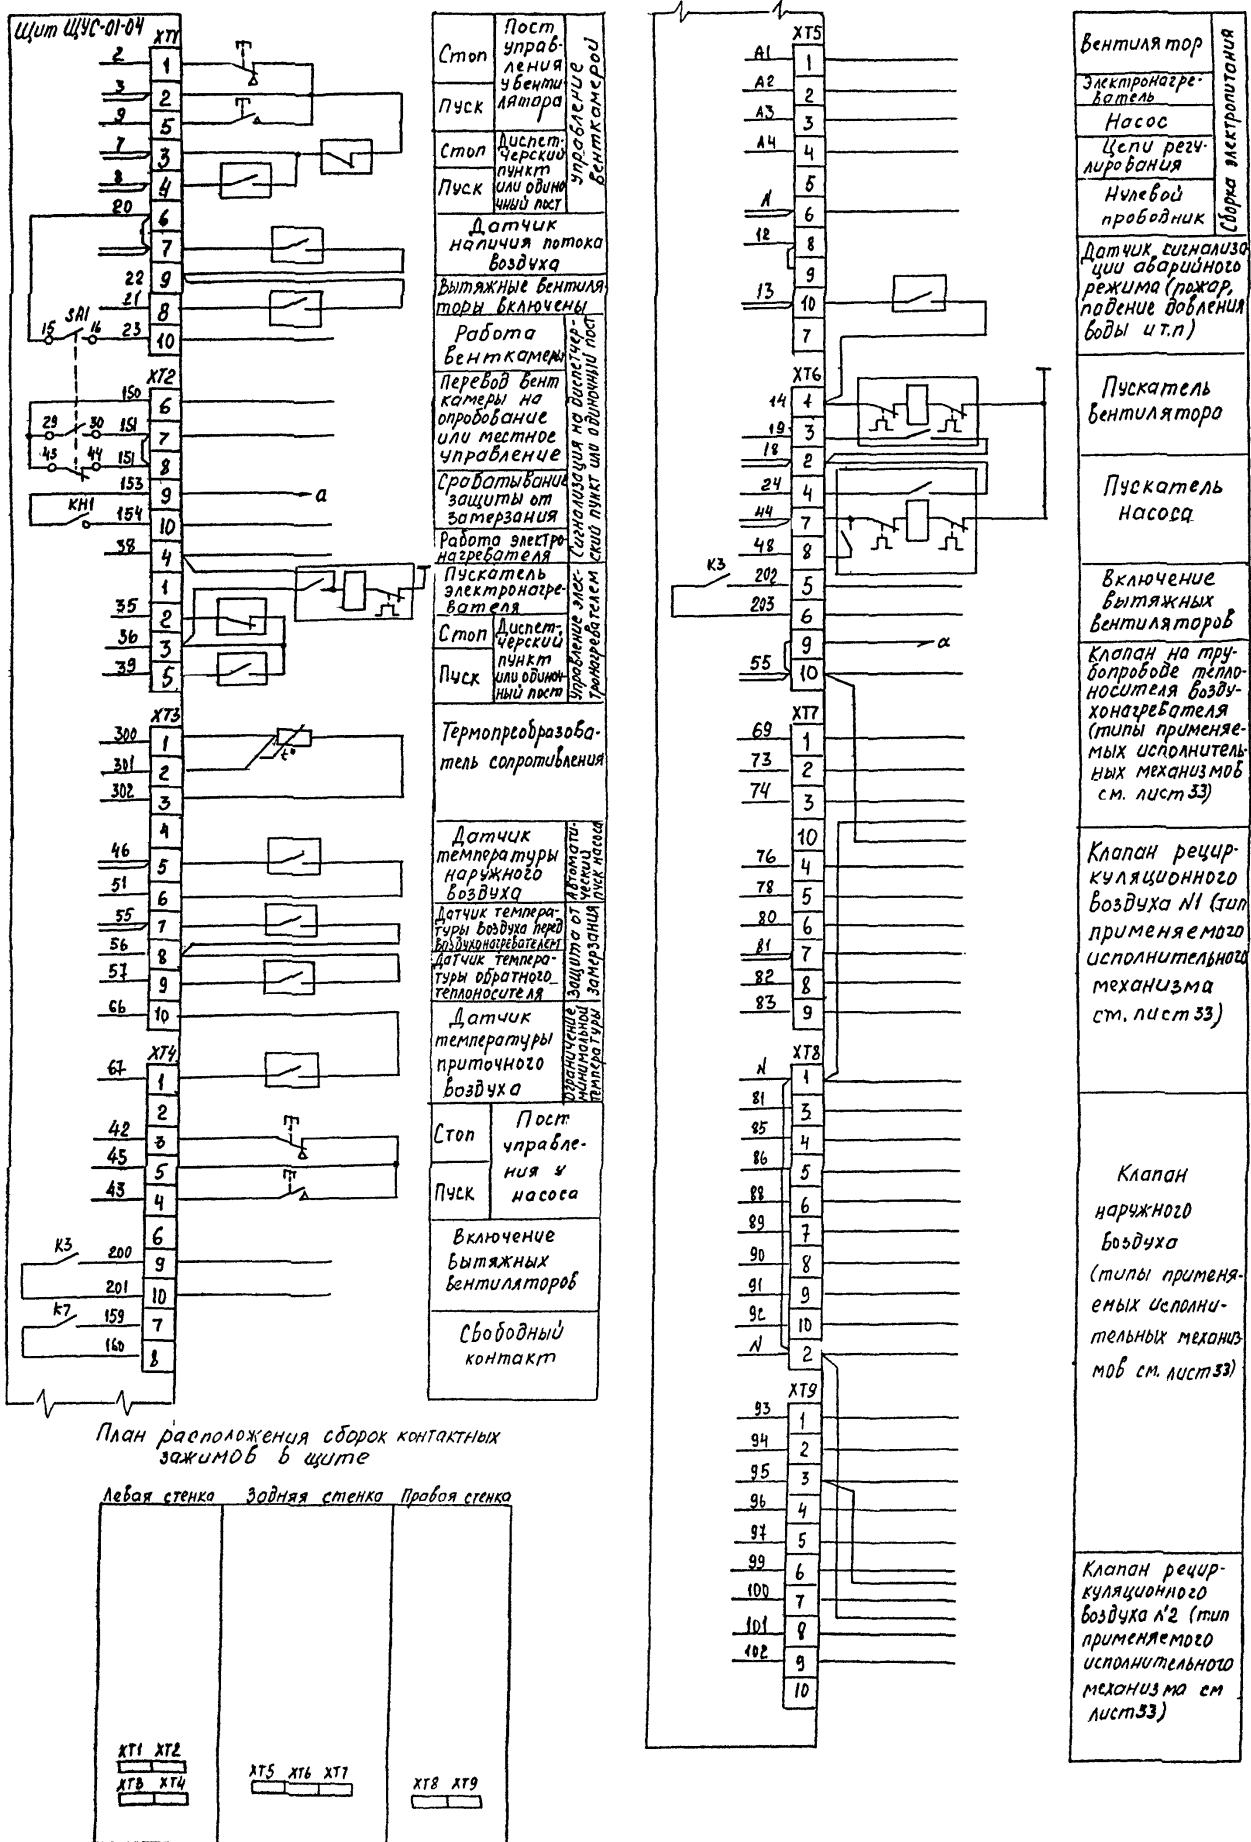 Щит ЩУС-01-04
XT1
2
1
3
2
9
5
7
3
8
4
20
6
7
22
9
21
8
SA1
15
16
23
10
XT2
150
6
29
30
151
7
43
44
151
8
153
9
а
КН1
154
10
38
4
1
35
2
36
3
39
5
XT3
300
1
301
2
t°
302
3
4
46
5
51
6
55
7
56
8
57
9
66
10
XT4
67
1
2
42
3
45
5
43
4
6
К3
200
9
201
10
К7
159
7
160
8
Стоп
Пуск
Пост
управ-
ления
у венти-
лятора
Стоп
Пуск
Диспет-
черский
пункт
или одино
чный пост
Управление
венткамерой
Датчик
наличия потока
воздуха
Вытяжные вентиля
торы включены
Работа
венткамеры
Перевод вент
камеры на
опробование
или местное
управление
Срабатывание
защиты от
замерзания
Работа электро
нагревателя
Сигнализация на диспетчер-
ский пункт или одиночный пост
Пускатель
электронагре-
вателя
Стоп
Пуск
Диспет-
черский
пункт
или одиноч-
ный пост
Управление элек-
тронагревателем
Термопреобразова-
тель сопротивления
Датчик
температуры
наружного
воздуха
Автомати-
ческий
пуск насоса
Датчик темпера-
туры воздуха перед
воздухонагревателем
Датчик темпера-
туры обратного
теплоносителя
Защита от
замерзания
Датчик
температуры
приточного
воздуха
Ограничение
минимальной
температуры
Стоп
Пуск
Пост
управле-
ния у
насоса
Включение
вытяжных
вентиляторов
Свободный
контакт
План расположения сборок контактных
зажимов в щите
Левая стенка
Задняя стенка
Правая стенка
XT1 XT2
XT3 XT4
XT5 XT6 XT7
XT8 XT9
XT5
A1
1
A2
2
A3
3
A4
4
5
N
6
12
8
9
13
10
7
XT6
14
1
19
3
18
2
24
4
44
7
48
8
К3
202
5
203
6
9
а
55
10
XT7
69
1
73
2
74
3
10
76
4
78
5
80
6
81
7
82
8
83
9
XT8
N
1
81
3
85
4
86
5
88
6
89
7
90
8
91
9
92
10
N
2
XT9
93
1
94
2
95
3
96
4
97
5
99
6
100
7
101
8
102
9
10
Вентилятор
Электронагре-
ватель
Насос
Цепи регу-
лирования
Нулевой
проводник
Сборка электропитания
Датчик сигнализа
ции аварийного
режима (пожар,
падение давления
воды и т.п)
Пускатель
вентилятора
Пускатель
насоса
Включение
вытяжных
вентиляторов
Клапан на тру-
бопроводе тепло-
носителя возду-
хонагревателя
(типы применяе-
мых исполнитель-
ных механизмов
см. лист 33)
Клапан рецир-
куляционного
воздуха N1 (тип
применяемого
исполнительного
механизма
см. лист 33)
Клапан
наружного
воздуха
(типы применя-
емых исполни-
тельных механиз
мов см. лист 33)
Клапан рецир-
куляционного
воздуха N2 (тип
применяемого
исполнительного
механизма см
лист 33)